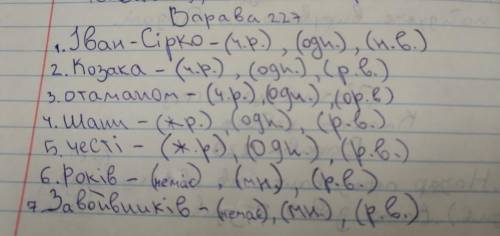 Варава 227
1. Іван-Сірко - (ч.р.), (одн.), (н.в.)
2. Козака - (ч.р.), (одн.), (р.в.)
3. отаманом - (ч.р.), (одн.), (ор.в)
4. Шани - (ж.р.), (одн.), (р.в.)
5. честі - (ж.р.), (одн.), (р.в.)
6. Років - (немає), (мн.), (р.в.)
7. Завойвників - (немає), (мн.), (р.в.)